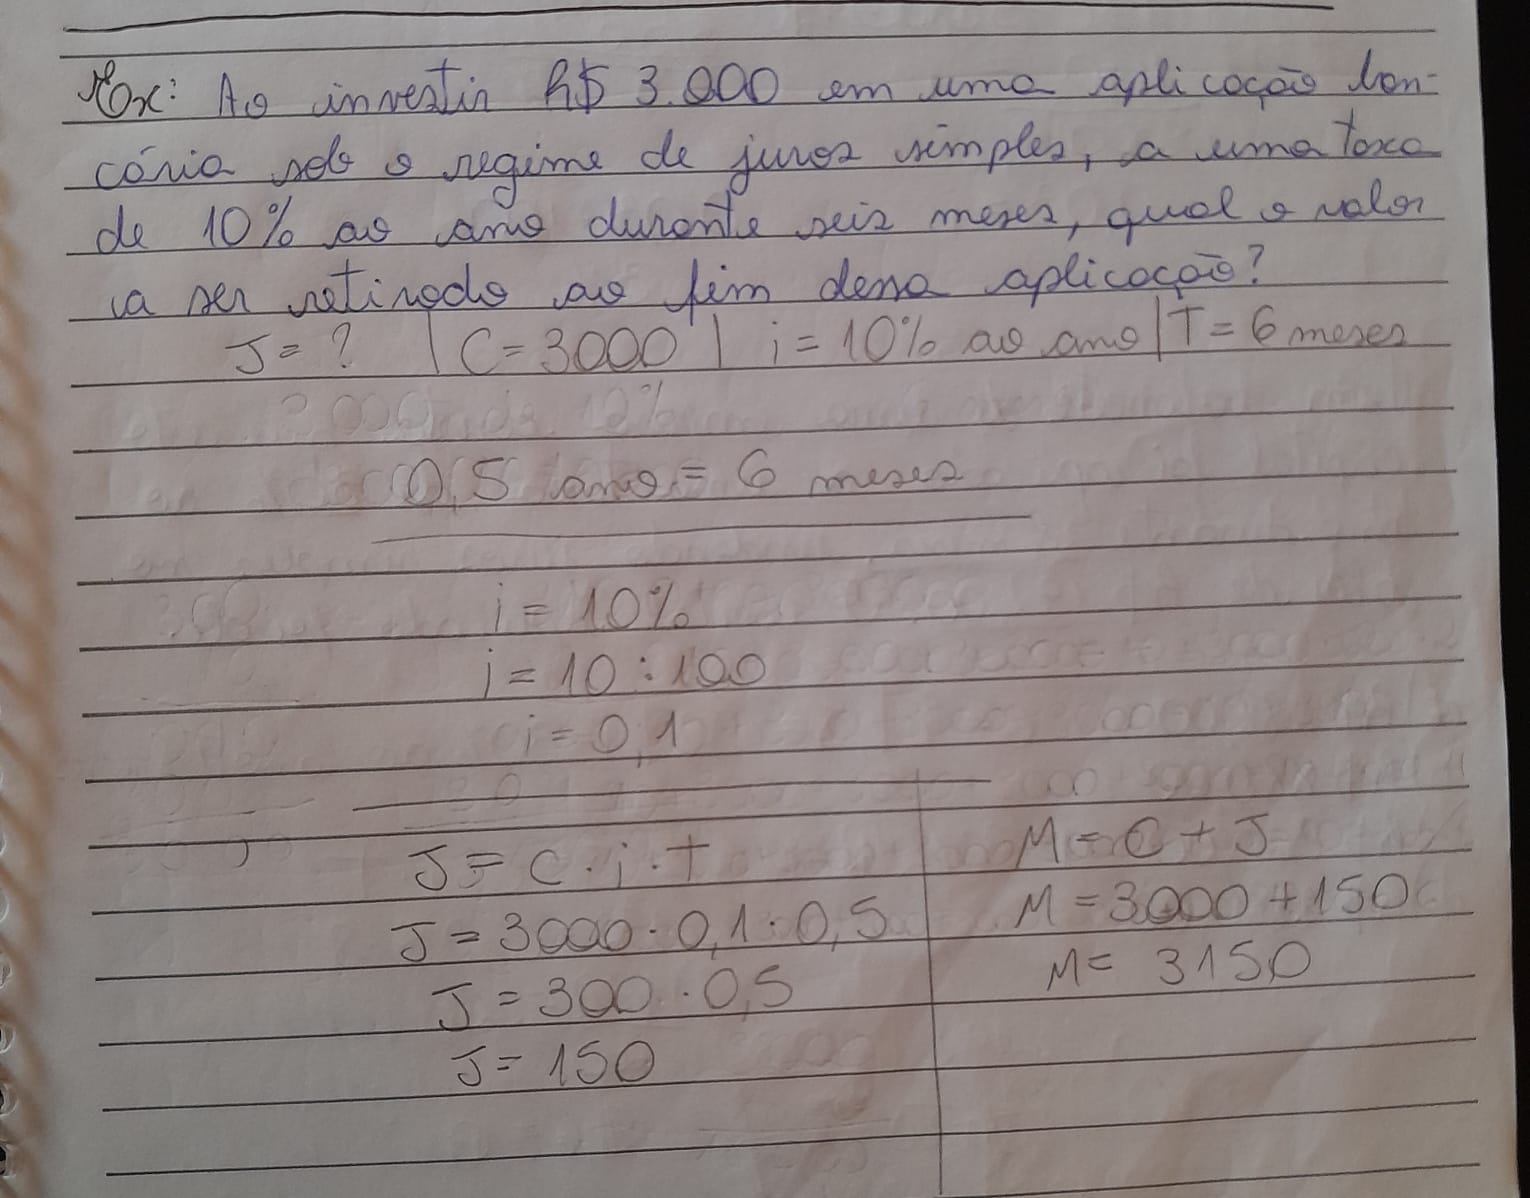 Ex: Ao investir R$ 3.000 em uma aplicação ban-
cária sob o regime de juros simples, a uma taxa
de 10% ao ano durante seis meses, qual o valor
a ser retirado ao fim dessa aplicação?
J = ? | C = 3000 | i = 10% ao ano | T = 6 meses
0,5 ano = 6 meses
i = 10%
i = 10 : 100
i = 0,1
J = C . i . T
J = 3000 . 0,1 . 0,5
J = 300 . 0,5
J = 150
M = C + J
M = 3000 + 150
M = 3150